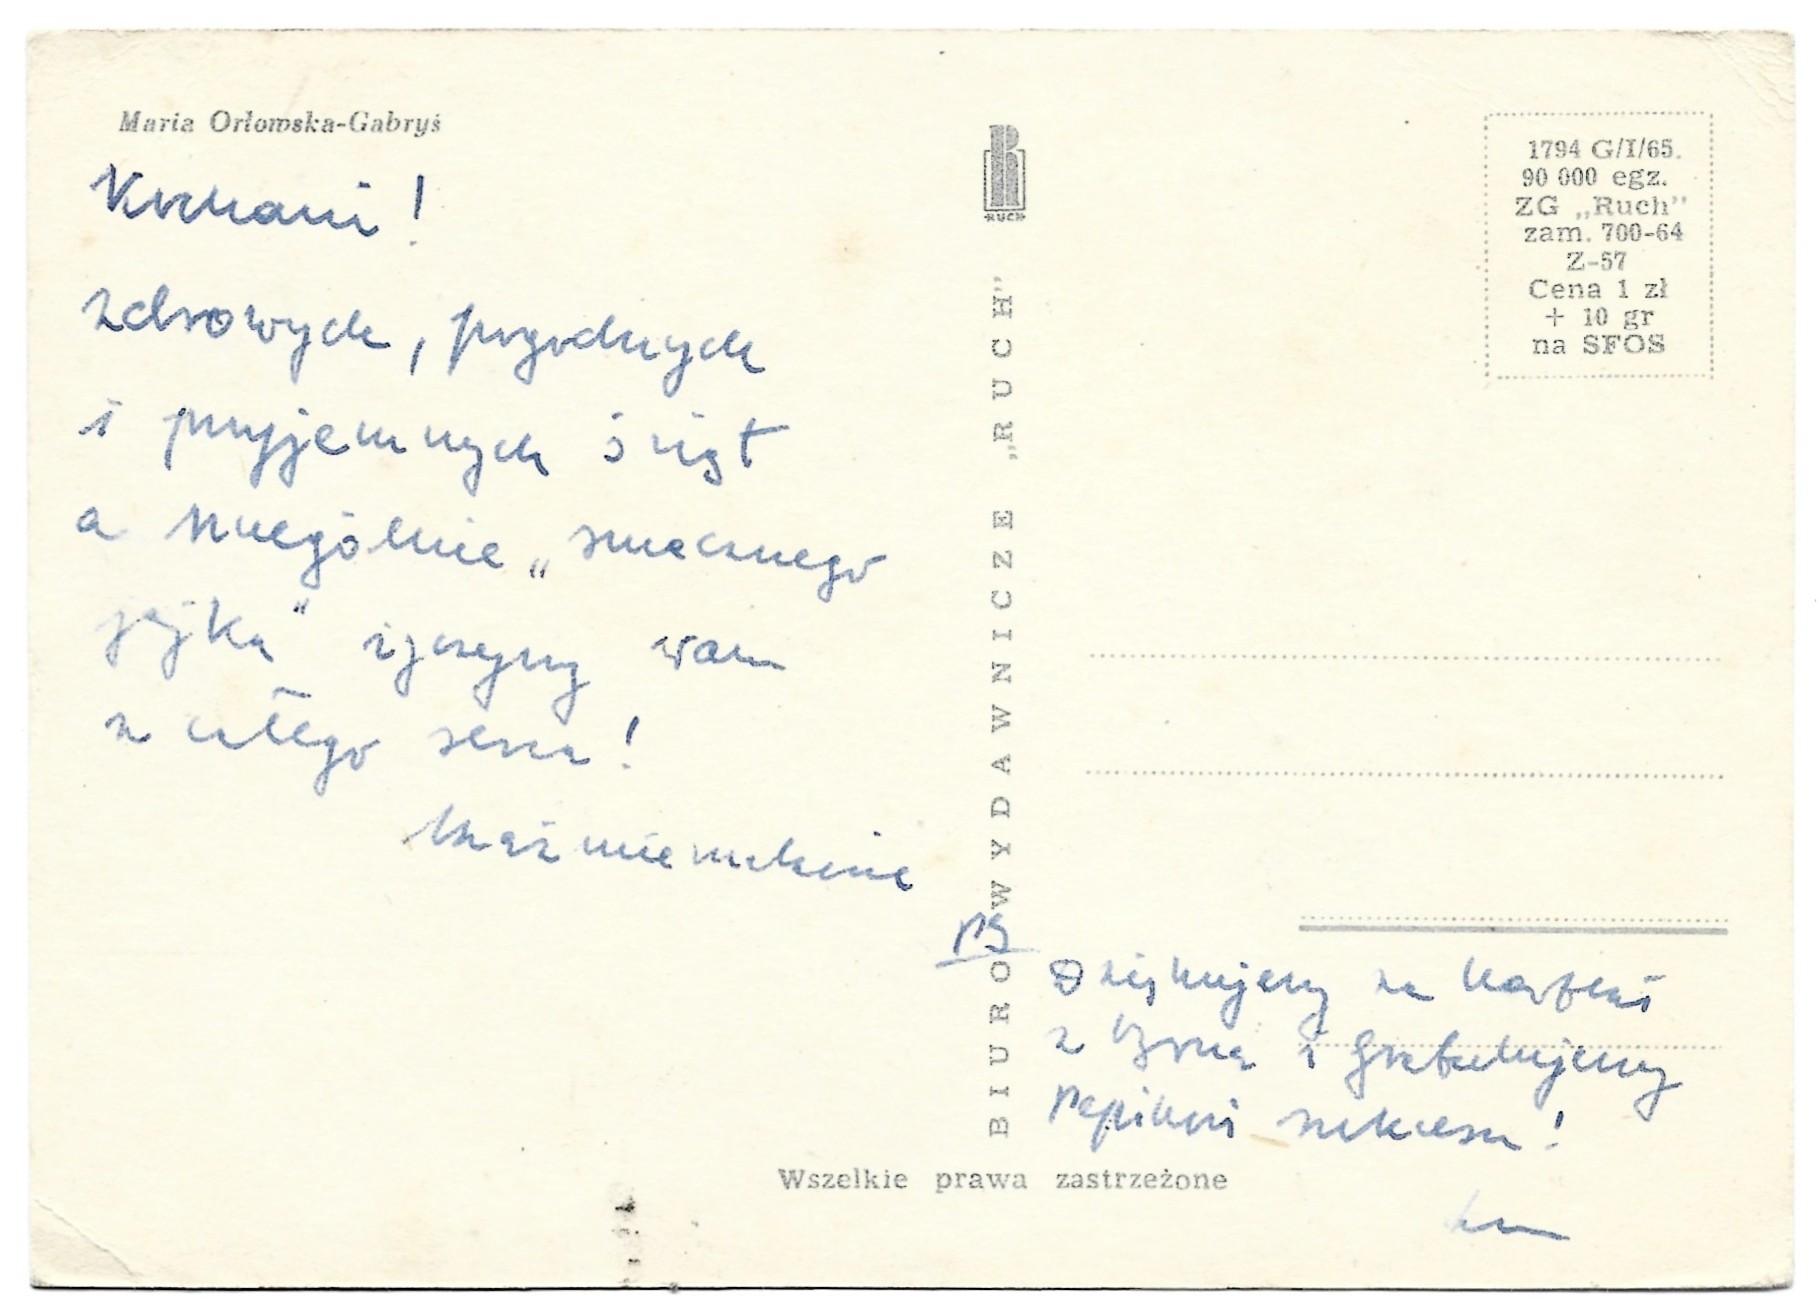 Maria Orłowska-Gabryś
Kochani!
zdrowych, pogodnych
i przyjemnych świąt
a szczególnie „smacznego
jajka" życzymy wam
z całego serca!
RUCH
BIURO WYDAWNICZE „RUCH"
1794 G/I/65.
90 000 egz.
ZG „Ruch"
zam. 700-64
Z-57
Cena 1 zł
+ 10 gr
na SFOS
PS
Dziękujemy za kartki
z i gratulujemy
sukcesu!
Wszelkie prawa zastrzeżone